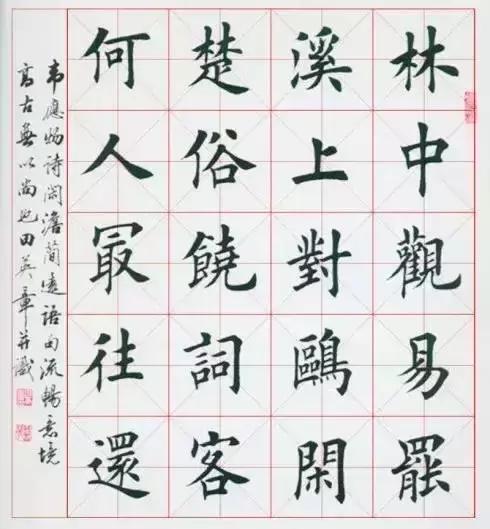 林中觀易罷
溪上對鷗閑
楚俗饒詞客
何人最往還
韦應物诗闲澹簡遠語句流暢意境
高古無以尚也田英章并識